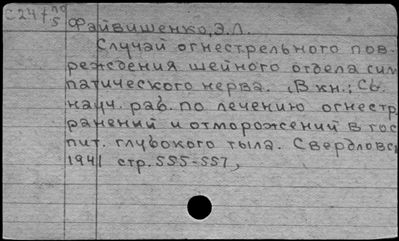 Файвишенко, Э.Л.
Случай огнестрельного пов-
реждения шейного отдела сим
патического нерва. В кн.: Сб.
науч. раб. по лечению огнестр.
ранений и отморожений в гос
пит. глубокого тыла. Свердловск
1941 стр. 555-557,